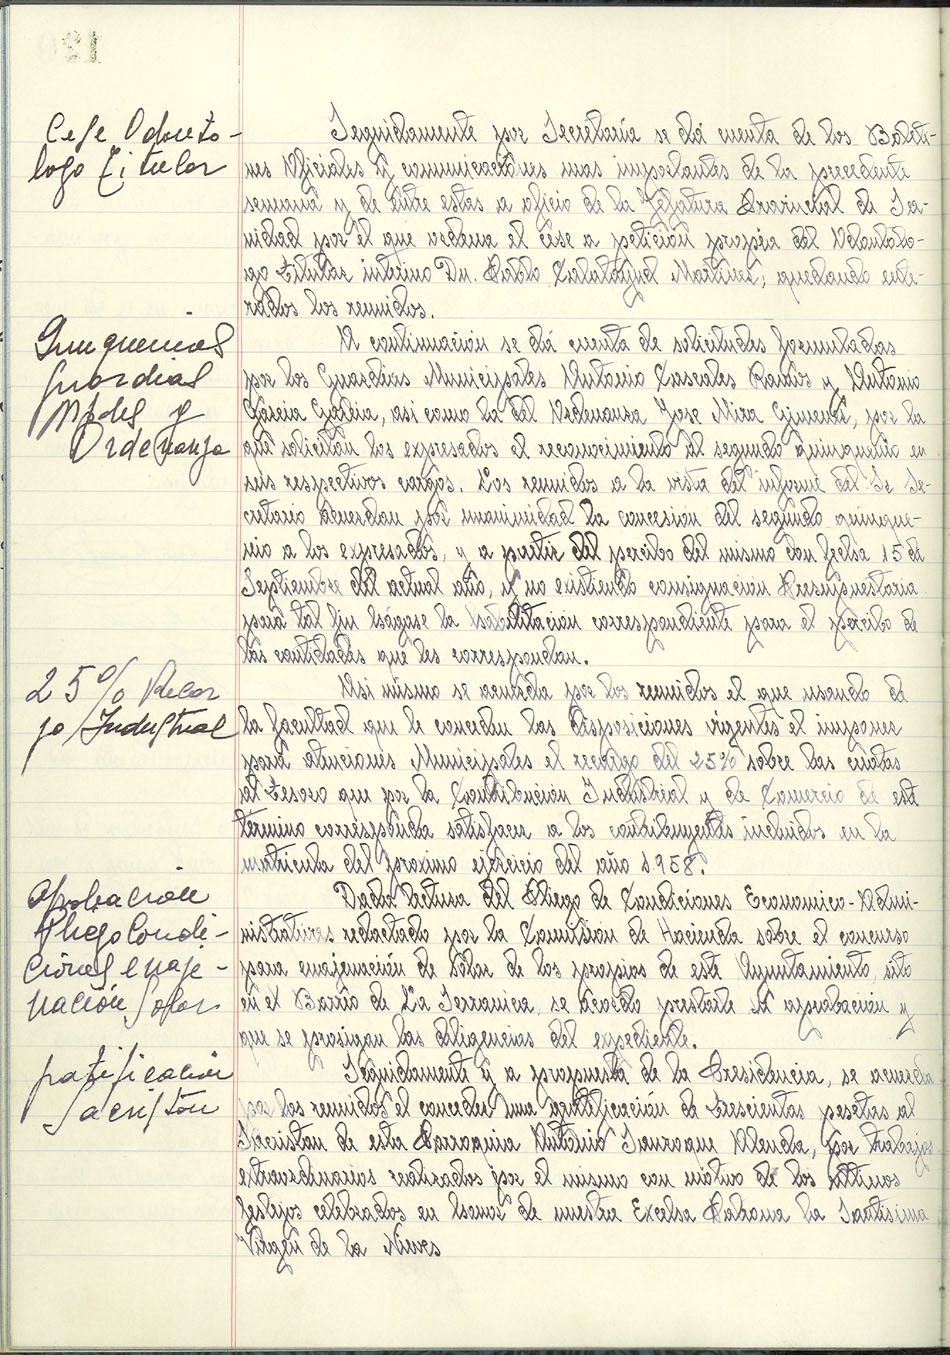 Cese Odonto-
logo Titular
Seguidamente por Secretaría se dá cuenta de los Boleti-
nes Oficiales y comunicaciones mas importantes de la precedente
semana y de entre estas a oficio de la Jefatura Provincial de Sa-
nidad por el que ordena el cese a petición propia del Odontolo-
go titular interino Dn. Pablo Calatayud Martínes; quedando ente-
rados los reunidos.
Quinquenios
guardias
Mpales y
Ordenanza
A continuación se dá cuenta de solicitudes formuladas
por los Guardias Municipales Antonio Cascales Ramos y Antonio
García García, asi como la del Ordenanza Jose Mira Gimenes, por la
que solicitan los expresados el reconocimiento del segundo quinquenio en
sus respectivos cargos. Los reunidos a la vista del informe del Sr Se-
cretario acuerdan por unanimidad la concesion del segundo quinque-
nio a los expresados, y a partir del percibo del mismo con fecha 15 de
Septiembre del actual año, y no existiendo consignacion Presupuestaria
para tal fin hágase la habilitación correspondiente para el percibo de
las cantidades que les correspondan.
25% Recar
go Industrial
Asi mismo se acuerda por los reunidos el que usando de
la facultad que le conceden las disposiciones vigentes el imponer
para atenciones Municipales el recargo del 25% sobre las cuotas
al Tesoro que por la Contribución Industrial y de Comercio de este
termino corresponda satisfacer a los contribuyentes incluidos en la
matricula del proximo ejercicio del año 1.958.
Aprobación
Pliego Condi-
ciones enaje-
nación Solar
Dada lectura del Pliego de Condiciones Economico-Admi-
nistrativas redactado por la Comision de Hacienda sobre el concurso
para enajenación de Solar de los propios de este Ayuntamiento, sito
en el Barrio de La Serranica, se acordo prestarle su aprobacion y
que se prosigan las diligencias del expediente.
gratificación
Sacristán
Seguidamente y a propuesta de la Presidencia, se acuerda
por los reunidos el conceder una gratificación de trescientas pesetas al
Sacristan de esta Parroquia Antonio Guiroque Alenda, por trabajos
extraordinarios realizados por el mismo con motivo de los ultimos
festejos celebrados en honor de nuestra Excelsa Patrona la Santisima
Virgen de la Nieves